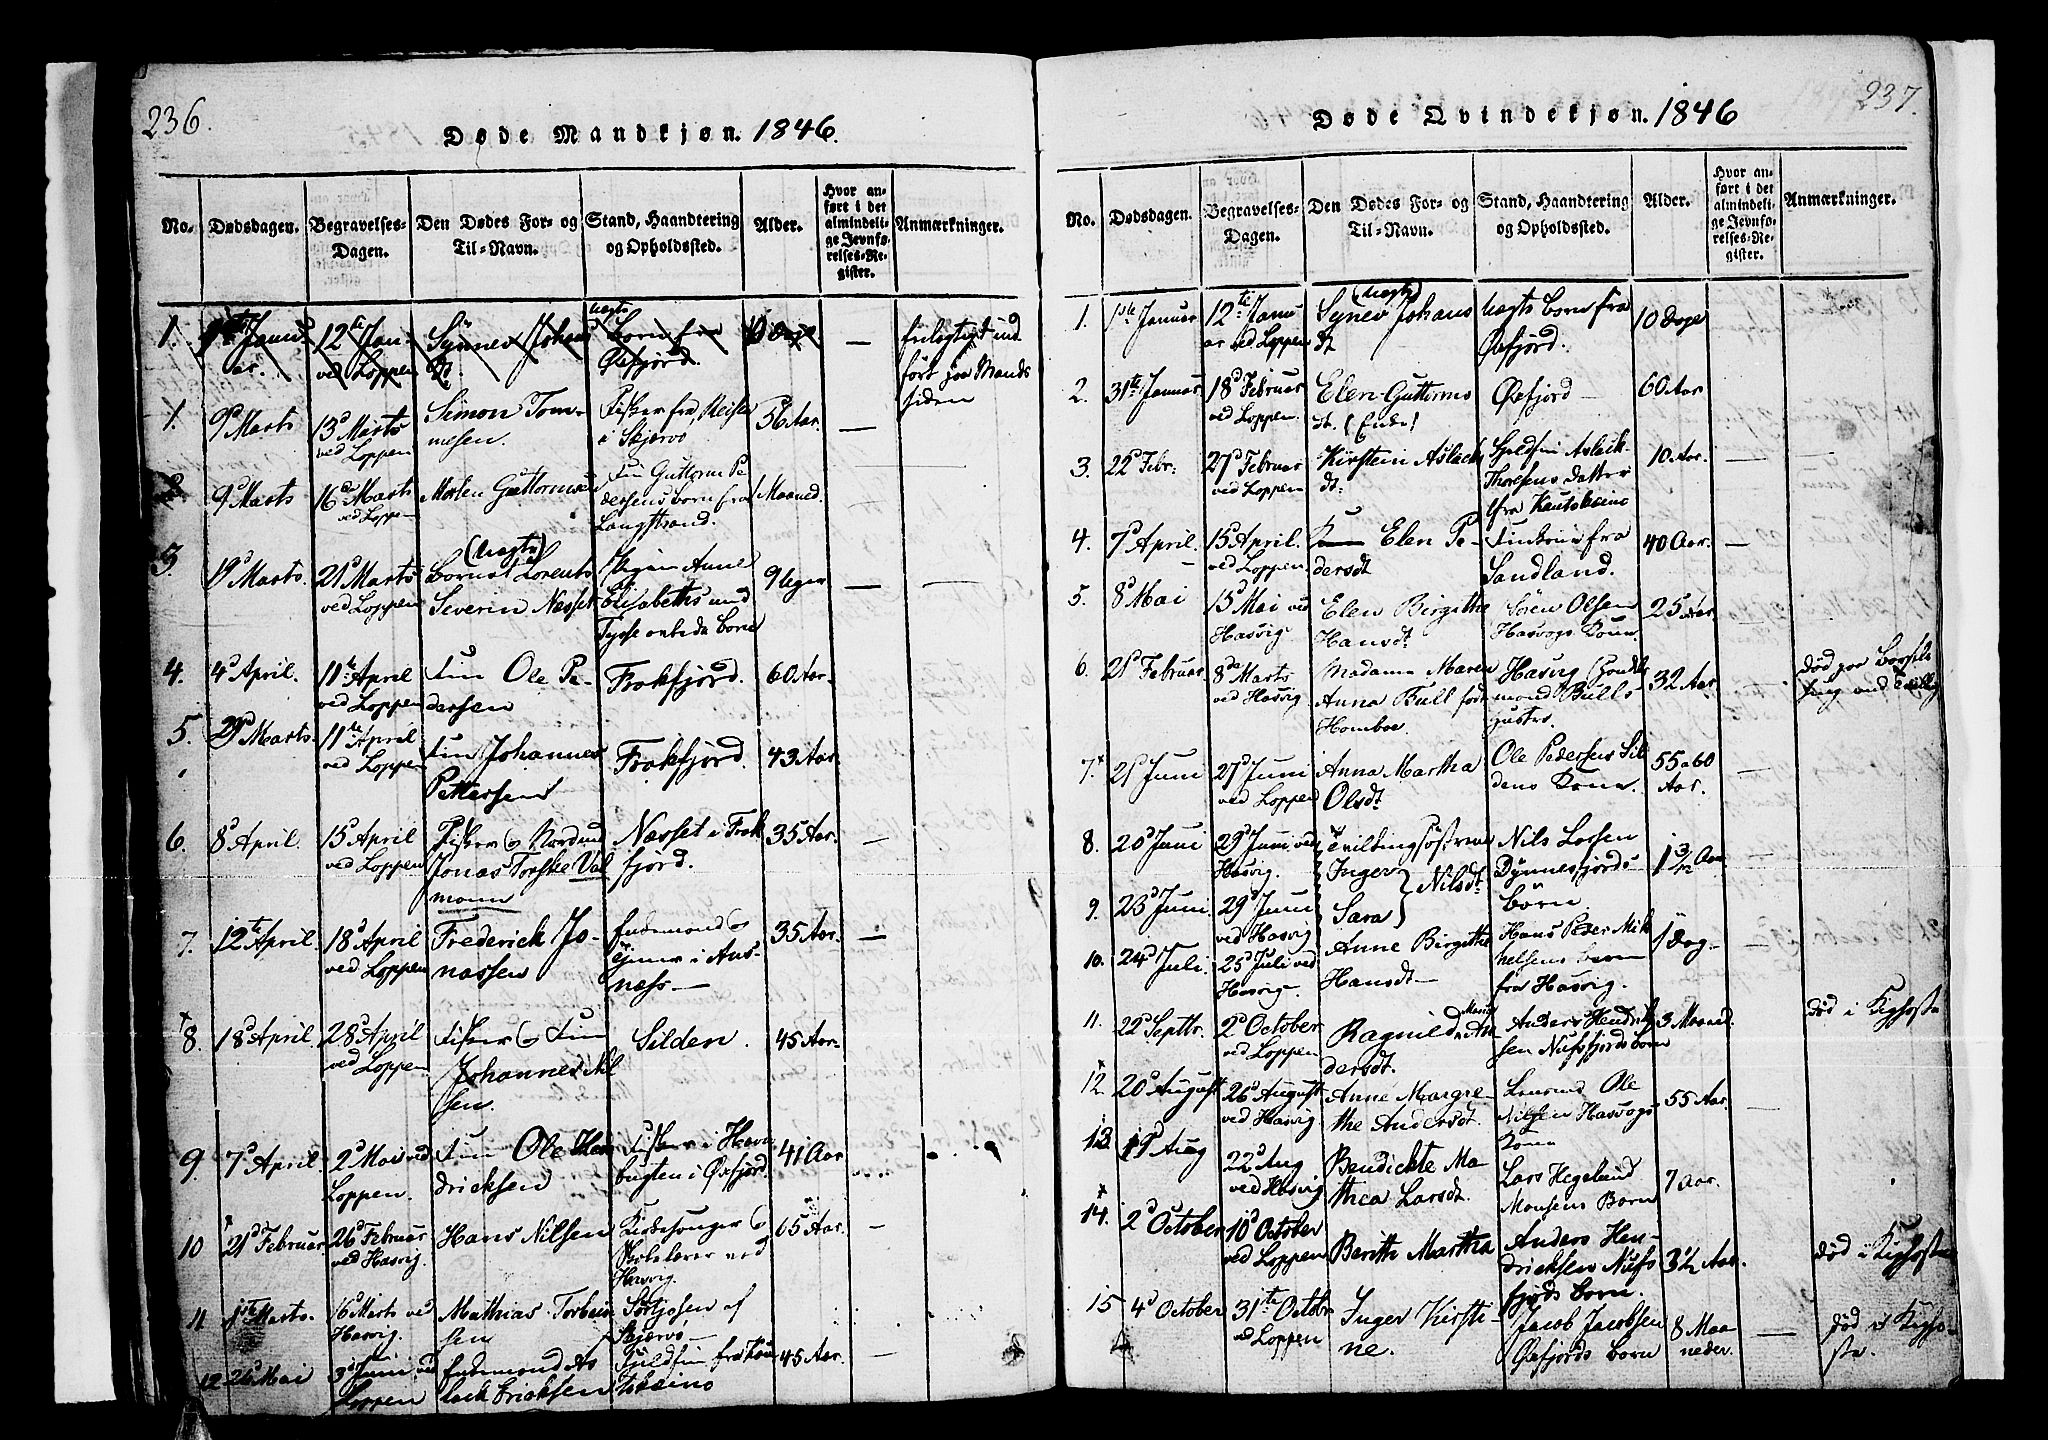 236.
Døde Mandkjøn. 1846.
No.
Dødsdagen.
Begravelses-
Dagen.
Den Dødes For- og
Til-Navn.
Stand, Haandtering
og Opholdssted.
Alder.
Hvor an-
ført i det
almindeli-
ge Jevnfø-
relses-Re-
gister.
Anmærkninger.
1. 1ste Janu-
ar. 12te Jan-
ved Loppen Synnev Johans
dt. uægte
Born fra
Øxfjord. 10 Dage — ind
ført paa Mands
siden
1. 9d Marts 13d Marts
ved Loppen Simon Tom-
mesen. Fisker fra Reisen
i Skjærvø 56 Aar. —
2. 9d Marts 16d Marts
ved Loppen Morten Guttormsen Fin Guttorm Pe
dersens born fra
Langstrand. 1 Maaned.
3. 19d Marts 21d Marts
ved Loppen (uægte)
Lorents
Severin Næsset Pigen Anne
Elisabeths
born 9 Uger —
4. 4d April. 11te April
ved Loppen Fin Ole Pe-
dersen Frakfjord. 60 Aar.
5. 29d Marts. 11te April
ved Loppen Fin Johannes
Pettersen Frakfjord. 43 Aar.
6. 8d April. 15d April
ved Loppen Fisker og Nordmd
Jonas Torske Val
mann Næsset i Frak
fjord. 35 Aar. —
7. 12te April. 18d April
ved Loppen Frederick Jo-
nassen Enkemand og
i Aus-
næss — 35 Aar. —
8. 18d April. 28d April
ved Loppen Fisker og Fin
Johannes Nil
sen. Silden. 45 Aar.
9. 7d April. 2d Mai ved
Loppen. Fin Ole Hen
dricksen Fisker i Havn
bugten i Øxfjord. 41 Aar
10 21d Februar 26d Februar
ved Hasvig. Hans Nilsen Kirkesanger og
Skolelærer ved
Hasvig. 65 Aar. —
11 1ste Marts. 16d Marts ved
Hasvig. Mathias Torbein
sen Sørkjosen af
Skjærvø —
12. 26d Mai 3d Juni ved
Loppen Enkemand As
lack Ericksen Fjeldfin fra Kau
tokeino 45 Aar. —
237.
Døde Qvindekjøn. 1846
No.
Dødsdagen.
Begravelses-
Dagen.
Den Dødes For- og
Til-Navn.
Stand, Haandtering
og Opholdssted.
Alder.
Hvor an-
ført i det
almindeli-
ge Jevnfø-
relses-Re-
gister.
Anmærkninger.
1. 1ste Januar 12te Janu
ar ved Loppen (uægte)
Synev Johans
dt uægte born fra
Øxfjord. 10 Dage
2. 31te Januar 18d Februar
ved Loppen. Elen Guttorms
dt. (Enke) Øxfjord — 60 Aar
3. 22d Febr: 27d Februar
ved Loppen Kirsten Aslack
dt. Fjeldfin Aslack
Thoresens Datter
fra Kautokeino 10 Aar. —
4. 7d April. 15d April.
ved Loppen. Elen Pe-
dersdt Finkone fra
Sandland. 40 Aar. —
5. 8d Mai 15d Mai ved
Hasvig Elen Birgithe
Hansdt. Sören Olsen
Hasvogs Kone. 25 Aar.
6. 21d Februar 8de Marts
ved Hasvig Madame Maren
Anna Bull född
Homboe. Hasvig Handels
mand Bulls
Hustro. 32 Aar død paa Barsel
seng
7. 21d Juni 27d Juni
ved Loppen Anna Martha
Olsdt. Ole Pedersens Sil
dens Kone. 55 a 60
Aar. —
8. 20d Juni 29d Juni ved
Hasvig. Tvillingsöstrene
Inger
9. 23d Juni 29d Juni
ved Hasvig Sara } Nilsdt. Nils Larsen
Dynnesfjords
börn. 1 3/12 Aar —
10. 24d Juli. 25d Juli ved
Hasvig. Anne Birgithe
Hansdt — Hans Peder Mik
kelsens barn
fra Hasvig. 1 Dag —
11. 22d Septbr. 2d October
ved Loppen Ragnild An
dersdt. Anders Hendrik
sen Nufsfjords born 3 Maaned. død i Kighoste
12. 20d August 26d August
ved Hasvig Anne Margre-
the Andersdt. Ole
Nilsen Hasvogs
Kone 55 Aar. —
13 19d Aug 22d Aug
ved Hasvig Bendickte Ma-
thea Larsdt. Lars Hegelund
Monsens Born 7 Aar.
14. 2d October 10d October
ved Loppen Berith Martha Anders Hen-
dricksen Nufs
fjords born. 3½ Aar. død i Kighoste
15 4d October 31te Octobr
ved Loppen Inger Kirsti-
ne. Jacob Jacobsen
Øxfjords born 8 Maa
neder. — død i Kigho-
ste.